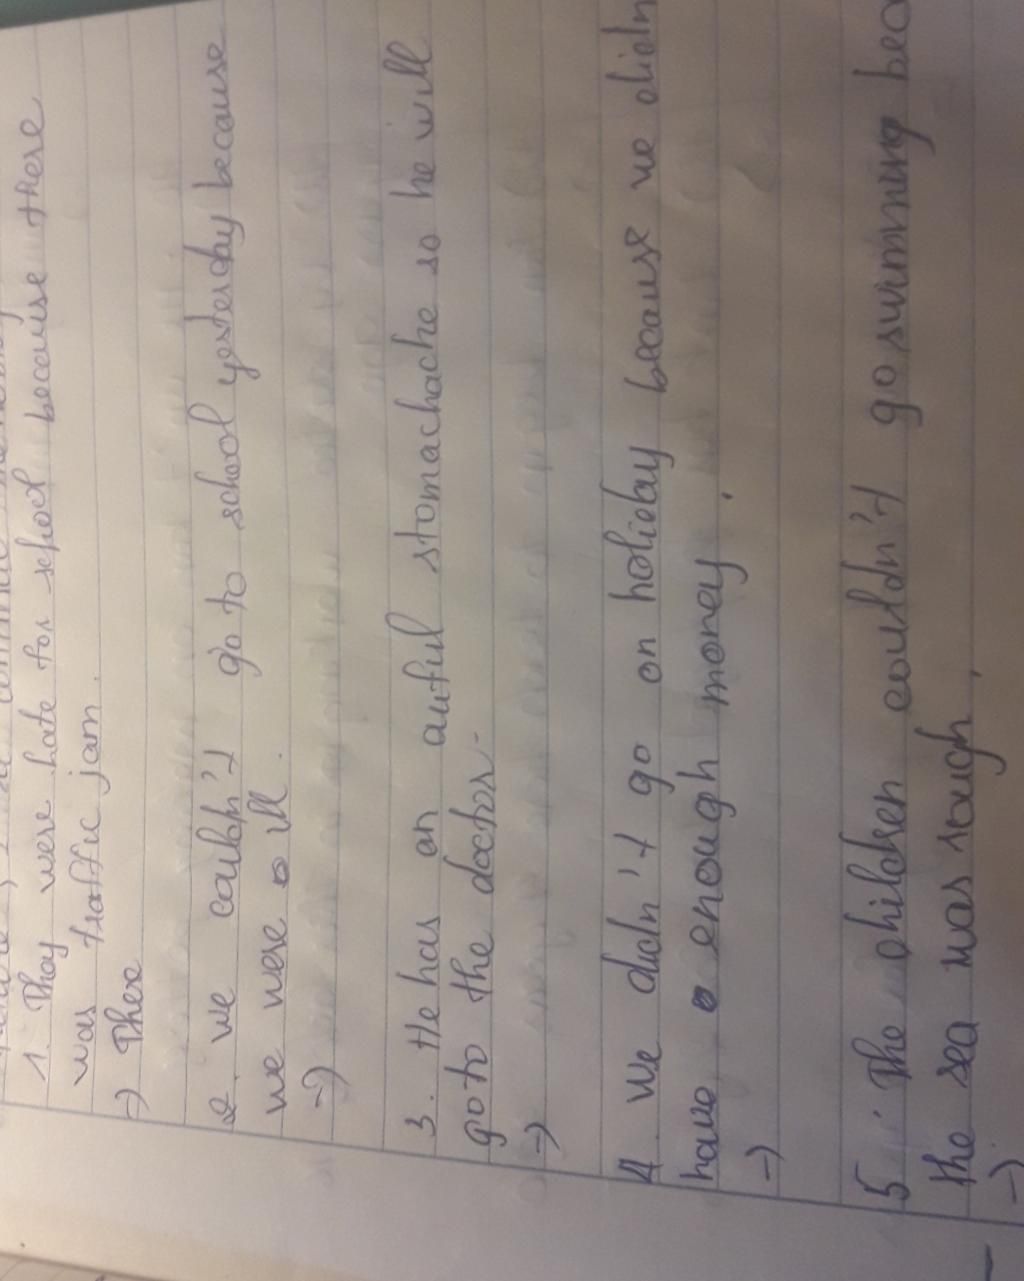 1. They were late for school because there
was traffic jam.
→ There
2. We couldn't go to school yesterday because
we were ill.
→
3. He has an awful stomachache so he will
go to the doctor.
→
4. We didn't go on holiday because we didn
have enough money.
→
5. The children couldn't go swimming beca
the sea was rough.
→